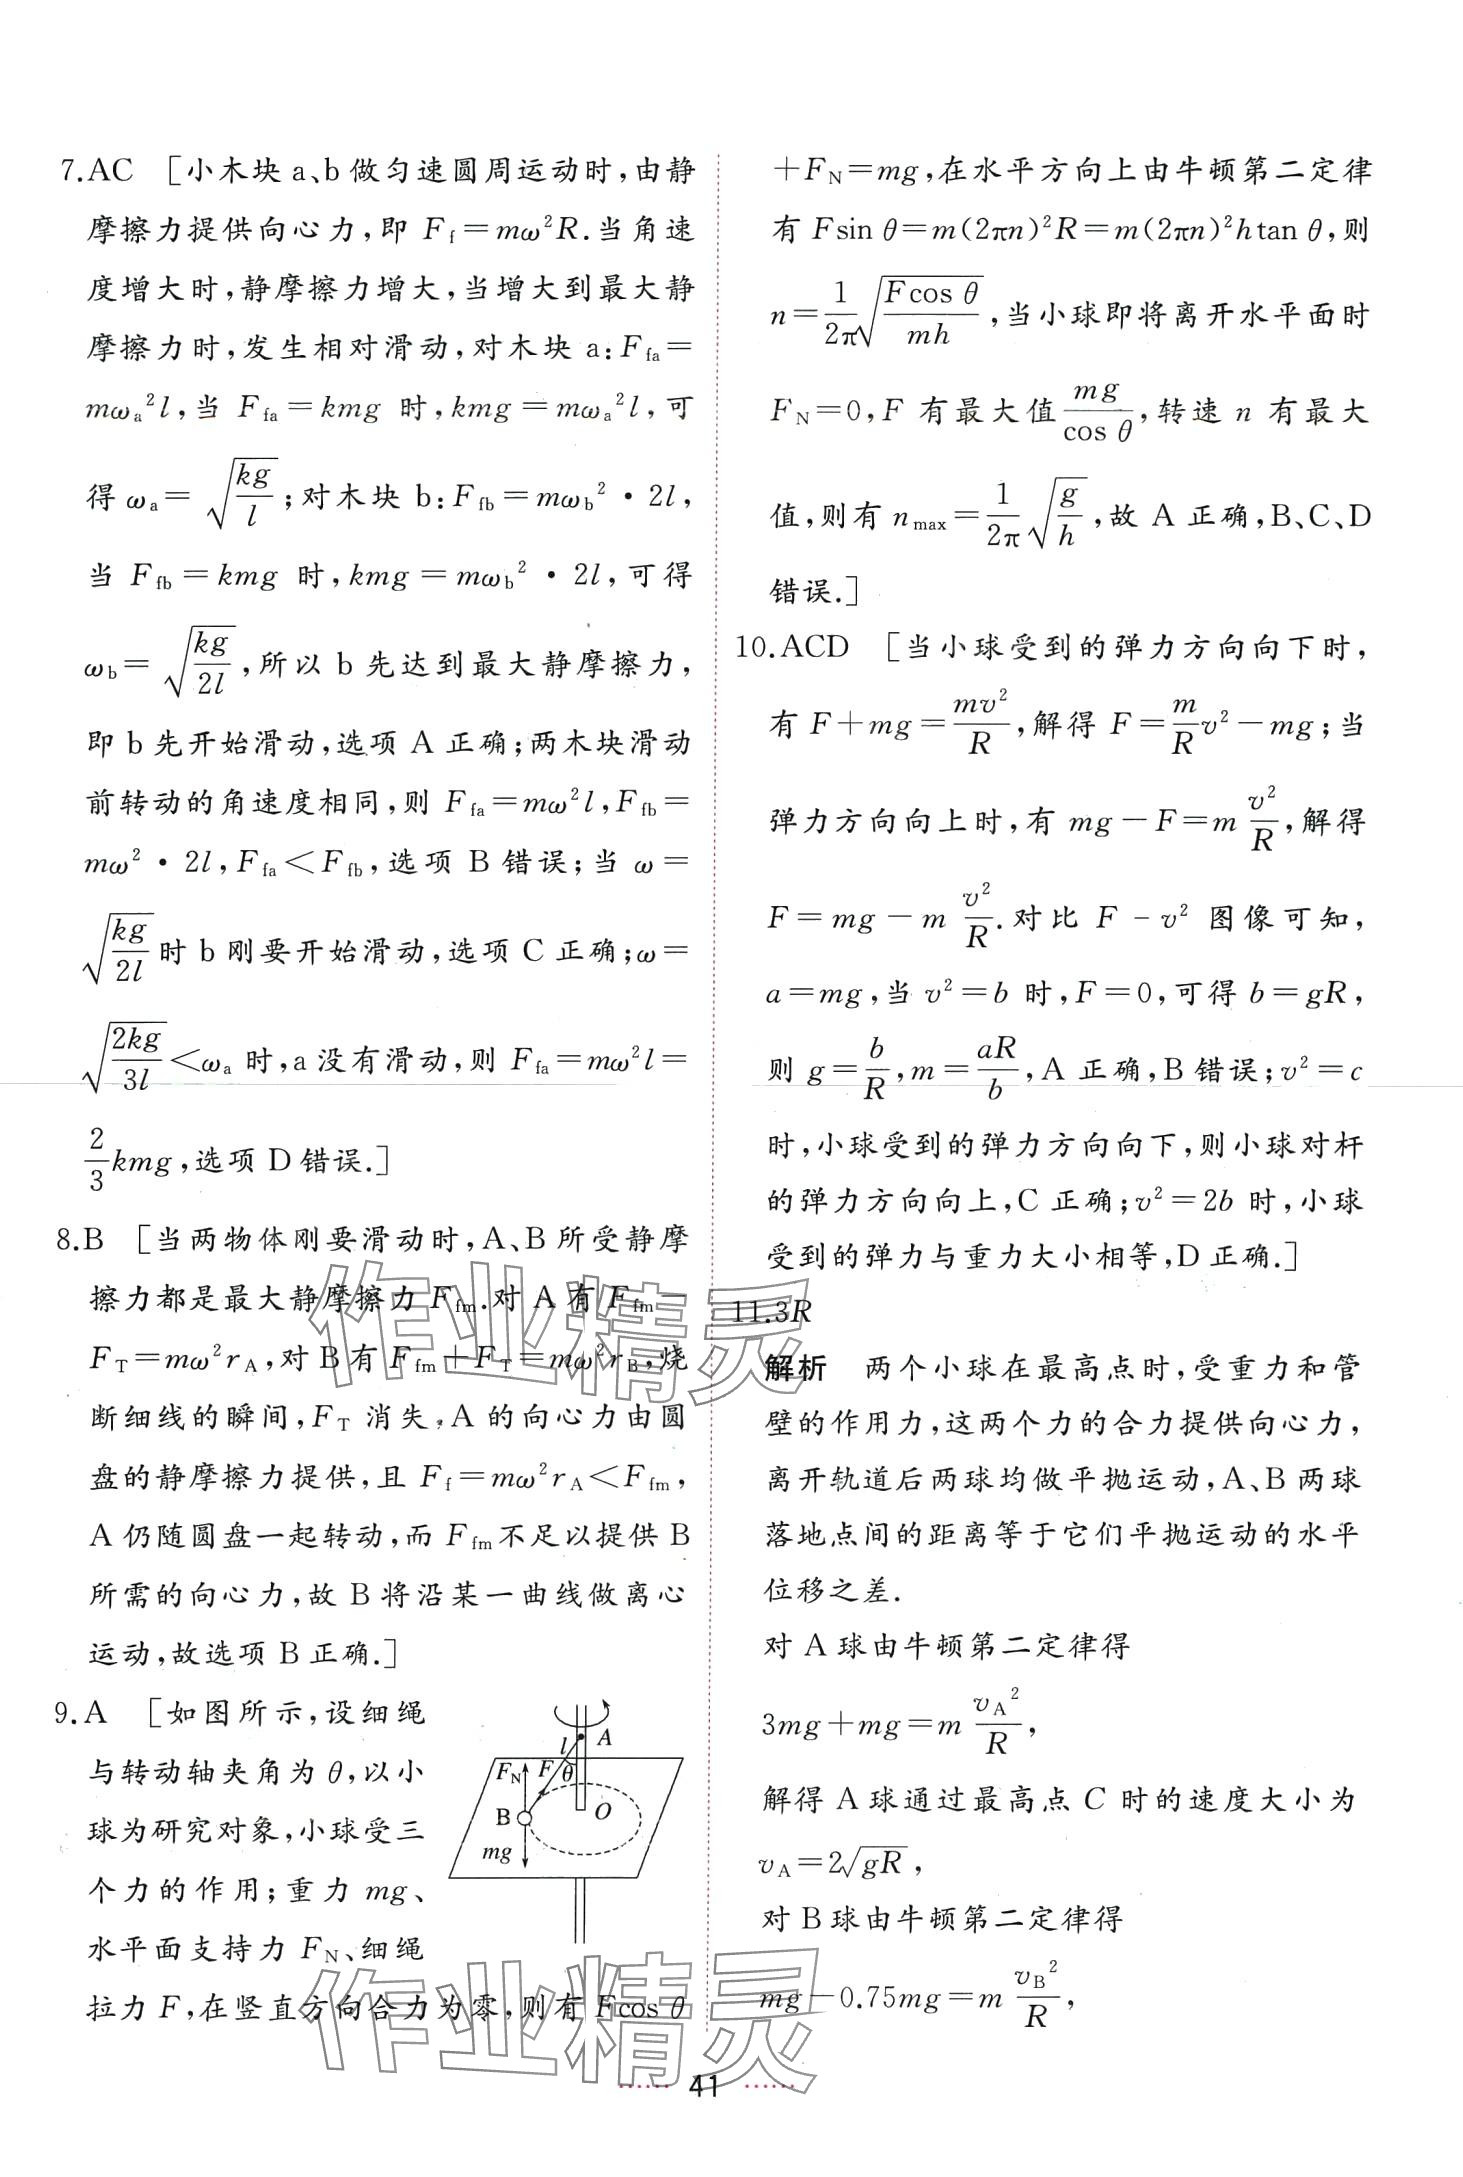 7.AC [小木块a、b做匀速圆周运动时,由静
摩擦力提供向心力,即 F_f=mω²R.当角速
度增大时,静摩擦力增大,当增大到最大静
摩擦力时,发生相对滑动,对木块a:F_fa=
mω_a²l,当 F_fa=kmg 时,kmg=mω_a²l,可
得 ω_a=√(kg/l);对木块 b:F_fb=mω_b²·2l,
当 F_fb=kmg 时,kmg=mω_b²·2l,可得
ω_b=√(kg/2l),所以 b 先达到最大静摩擦力,
即 b 先开始滑动,选项 A 正确;两木块滑动
前转动的角速度相同,则 F_fa=mω²l,F_fb=
mω²·2l,F_fa<F_fb,选项 B 错误;当 ω=
√(kg/2l)时 b 刚要开始滑动,选项 C 正确;ω=
√(2kg/3l)<ω_a 时,a 没有滑动,则 F_fa=mω²l=
2/3 kmg,选项 D 错误.]
8.B [当两物体刚要滑动时,A、B 所受静摩
擦力都是最大静摩擦力 F_fm.对 A 有 F_fm-
F_T=mω²r_A,对 B 有 F_fm+F_T=mω²r_B,烧
断细线的瞬间,F_T 消失,A 的向心力由圆
盘的静摩擦力提供,且 F_f=mω²r_A<F_fm,
A 仍随圆盘一起转动,而 F_fm不足以提供 B
所需的向心力,故 B 将沿某一曲线做离心
运动,故选项 B 正确.]
9.A [如图所示,设细绳
与转动轴夹角为 θ,以小
球为研究对象,小球受三
个力的作用;重力 mg、
水平面支持力 F_N、细绳
拉力 F,在竖直方向合力为零,则有 Fcos θ
l
A
F_N
F
θ
B
O
mg
+F_N=mg,在水平方向上由牛顿第二定律
有 Fsin θ=m(2πn)²R=m(2πn)²htan θ,则
n=1/2π √(Fcos θ/mh),当小球即将离开水平面时
F_N=0,F 有最大值 mg/cos θ,转速 n 有最大
值,则有 n_max=1/2π √(g/h),故 A 正确,B、C、D
错误.]
10.ACD [当小球受到的弹力方向向下时,
有 F+mg=mv²/R,解得 F=m/R v²-mg;当
弹力方向向上时,有 mg-F=m v²/R,解得
F=mg-m v²/R.对比 F-v² 图像可知,
a=mg,当 v²=b 时,F=0,可得 b=gR,
则 g=b/R,m=aR/b,A 正确,B 错误;v²=c
时,小球受到的弹力方向向下,则小球对杆
的弹力方向向上,C 正确;v²=2b 时,小球
受到的弹力与重力大小相等,D 正确.]
11.3R
解析 两个小球在最高点时,受重力和管
壁的作用力,这两个力的合力提供向心力,
离开轨道后两球均做平抛运动,A、B 两球
落地点间的距离等于它们平抛运动的水平
位移之差.
对 A 球由牛顿第二定律得
3mg+mg=m v_A²/R,
解得 A 球通过最高点 C 时的速度大小为
v_A=2√(gR),
对 B 球由牛顿第二定律得
mg-0.75mg=m v_B²/R,
41
作业精灵
作业精灵